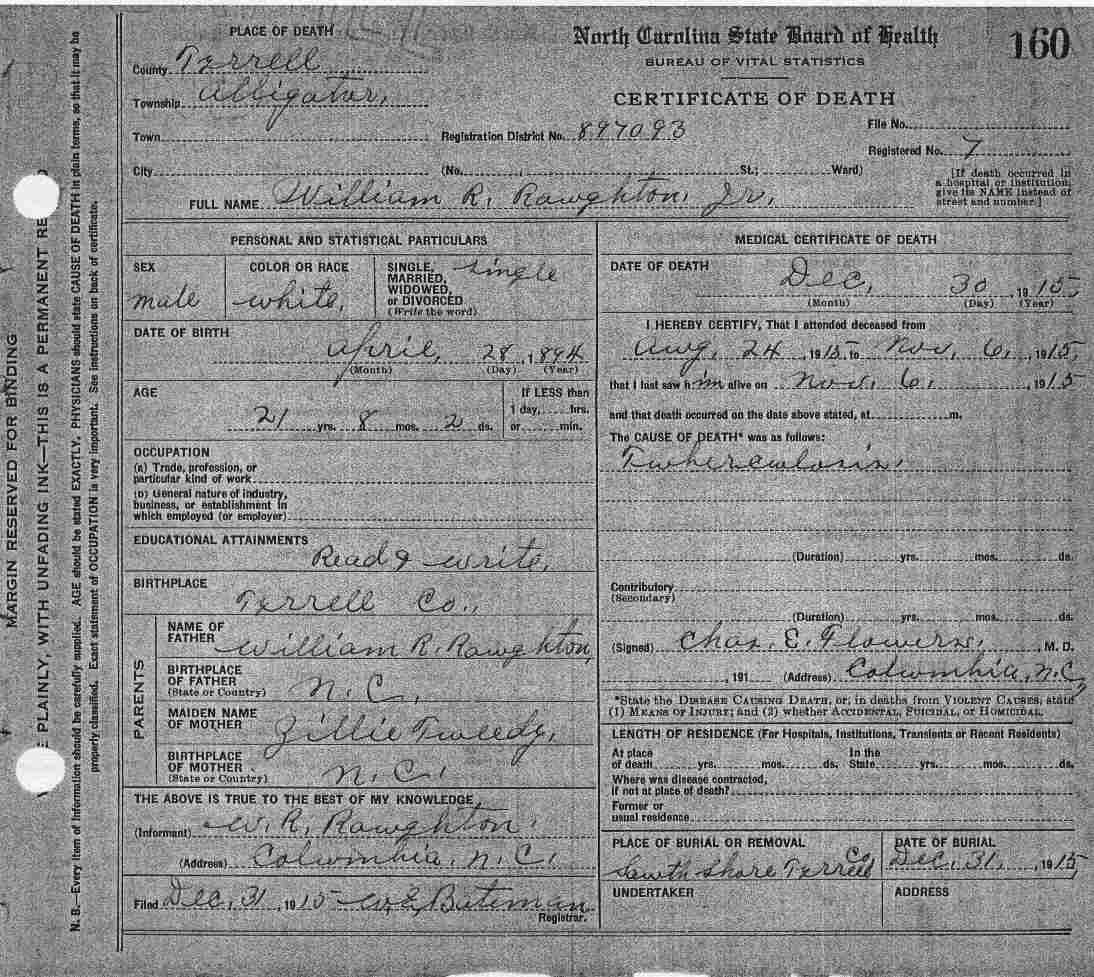 PLACE OF DEATH
North Carolina State Board of Health
160
BUREAU OF VITAL STATISTICS
County Tyrrell
Township Alligator,
CERTIFICATE OF DEATH
Town Registration District No. 897093 File No.
Registered No. 7
City (No. , St.; Ward)
[If death occurred in
a hospital or institution,
give its NAME instead of
street and number.]
FULL NAME William R. Raughton, Jr,
PERSONAL AND STATISTICAL PARTICULARS
SEX
male
COLOR OR RACE
white,
SINGLE, single
MARRIED,
WIDOWED,
or DIVORCED
(Write the word)
DATE OF BIRTH
April, 28, 1894
(Month) (Day) (Year)
AGE
21 yrs. 8 mos. 2 ds.
If LESS than
1 day, hrs.
or min.
OCCUPATION
(a) Trade, profession, or
particular kind of work
(b) General nature of industry,
business, or establishment in
which employed (or employer)
EDUCATIONAL ATTAINMENTS
Read & write,
BIRTHPLACE
Tyrrell Co.,
PARENTS
NAME OF
FATHER William R. Raughton,
BIRTHPLACE
OF FATHER
(State or Country) N.C.,
MAIDEN NAME
OF MOTHER Zillie Tweedy,
BIRTHPLACE
OF MOTHER
(State or Country) N.C.
THE ABOVE IS TRUE TO THE BEST OF MY KNOWLEDGE
(Informant) W. R. Raughton.
(Address) Columbia, N.C.
Filed Dec. 31, 1915 W. E. Bateman
Registrar.
MEDICAL CERTIFICATE OF DEATH
DATE OF DEATH
Dec, 30, 1915,
(Month) (Day) (Year)
I HEREBY CERTIFY, That I attended deceased from
Aug, 24, 1915, to Nov. 6, 1915,
that I last saw him alive on Nov. 6, , 1915
and that death occurred on the date above stated, at m.
The CAUSE OF DEATH* was as follows:
Tuberculosis.
(Duration) yrs. mos. ds.
Contributory
(Secondary)
(Duration) yrs. mos. ds.
(Signed) Chas. E. Flowers, M. D.
, 191 (Address) Columbia, N.C,
*State the DISEASE CAUSING DEATH, or, in deaths from VIOLENT CAUSES, state
(1) MEANS OF INJURY; and (2) whether ACCIDENTAL, SUICIDAL, or HOMICIDAL.
LENGTH OF RESIDENCE (For Hospitals, Institutions, Transients or Recent Residents)
At place In the
of death yrs. mos. ds. State yrs. mos. ds.
Where was disease contracted,
if not at place of death?
Former or
usual residence
PLACE OF BURIAL OR REMOVAL
South Shore Tyrrell Co
DATE OF BURIAL
Dec. 31, 1915
UNDERTAKER
ADDRESS
MARGIN RESERVED FOR BINDING
PLAINLY, WITH UNFADING INK—THIS IS A PERMANENT RE
N. B.—Every item of information should be carefully supplied. AGE should be stated EXACTLY. PHYSICIANS should state CAUSE OF DEATH in plain terms, so that it may be
properly classified. Exact statement of OCCUPATION is very important. See instructions on back of certificate.